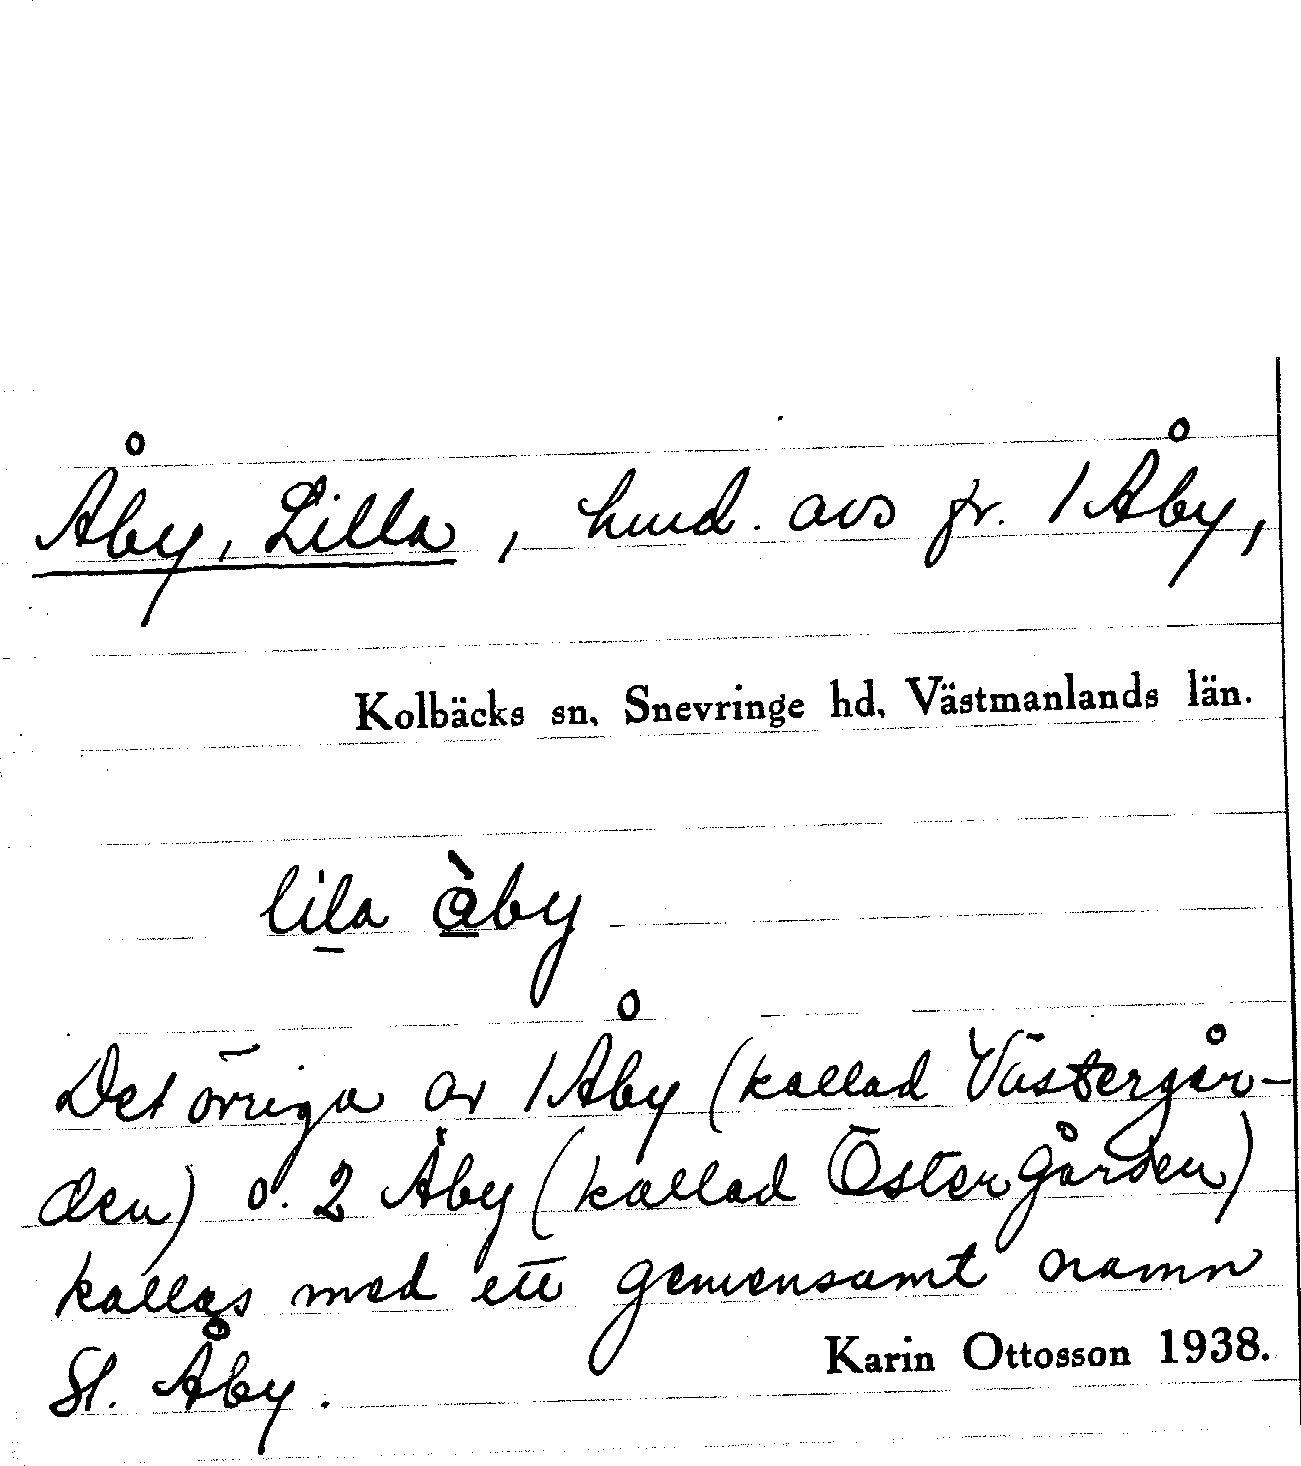 Åby, Lilla, hmd. avs fr. 1 Åby,
Kolbäcks sn, Snevringe hd, Västmanlands län.
lila åby
Det övriga av 1 Åby (kallad Västergår-
den) o. 2 Åby (kallad Östergården)
kallas med ett gemensamt namn
St. Åby.
Karin Ottosson 1938.